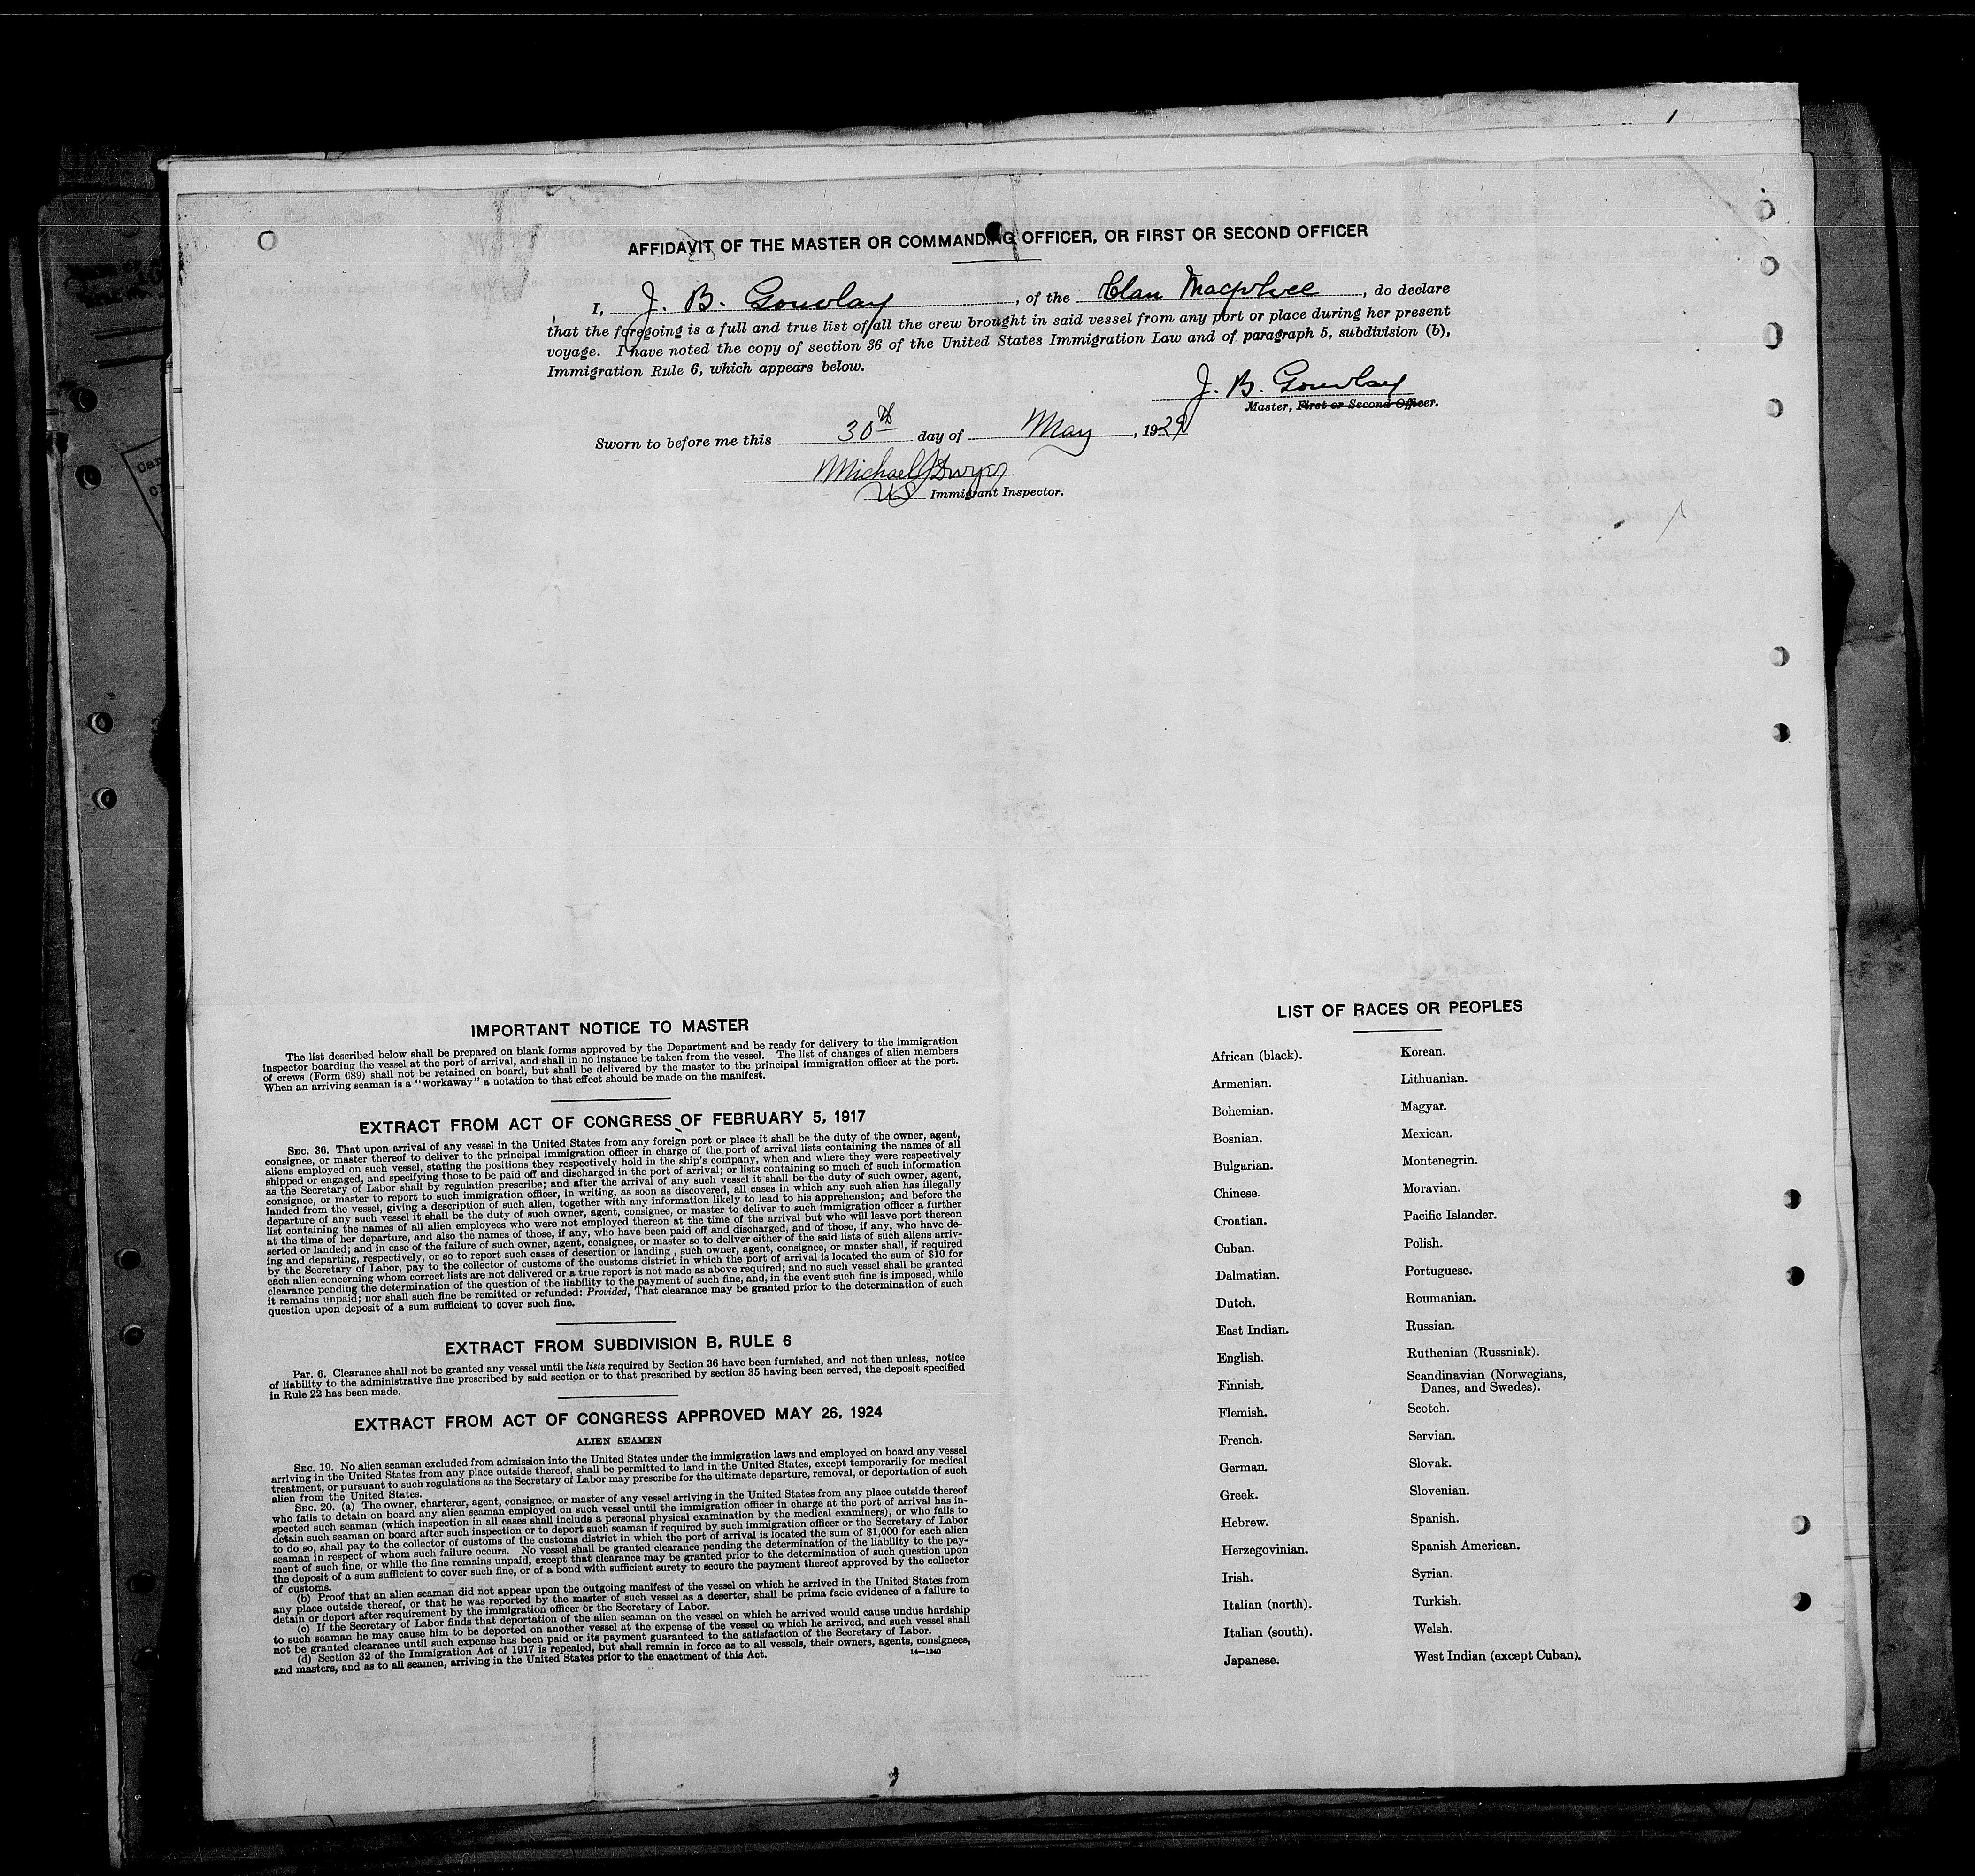 AFFIDAVIT OF THE MASTER OR COMMANDING OFFICER, OR FIRST OR SECOND OFFICER
I, J. B. Gourlay, of the Clan Macphee, do declare
that the foregoing is a full and true list of all the crew brought in said vessel from any port or place during her present
voyage. I have noted the copy of section 36 of the United States Immigration Law and of paragraph 5, subdivision (b),
Immigration Rule 6, which appears below.
J. B. Gourlay
Master, First or Second Officer.
Sworn to before me this 30th day of May, 1929
Michael J Dwyer
US Immigrant Inspector.
IMPORTANT NOTICE TO MASTER
The list described below shall be prepared on blank forms approved by the Department and be ready for delivery to the immigration
inspector boarding the vessel at the port of arrival, and shall in no instance be taken from the vessel. The list of changes of alien members
of crews (Form 689) shall not be retained on board, but shall be delivered by the master to the principal immigration officer at the port.
When an arriving seaman is a "workaway" a notation to that effect should be made on the manifest.
EXTRACT FROM ACT OF CONGRESS OF FEBRUARY 5, 1917
SEC. 36. That upon arrival of any vessel in the United States from any foreign port or place it shall be the duty of the owner, agent,
consignee, or master thereof to deliver to the principal immigration officer in charge of the port of arrival lists containing the names of all
aliens employed on such vessel, stating the positions they respectively hold in the ship's company, when and where they were respectively
shipped or engaged, and specifying those to be paid off and discharged in the port of arrival; or lists containing so much of such information
as the Secretary of Labor shall by regulation prescribe; and after the arrival of any such vessel it shall be the duty of such owner, agent,
consignee, or master to report to such immigration officer, in writing, as soon as discovered, all cases in which any such alien has illegally
landed from the vessel, giving a description of such alien, together with any information likely to lead to his apprehension; and before the
departure of any such vessel it shall be the duty of such owner, agent, consignee, or master to deliver to such immigration officer a further
list containing the names of all alien employees who were not employed thereon at the time of the arrival but who will leave port thereon
at the time of her departure, and also the names of those, if any, who have been paid off and discharged, and of those, if any, who have de-
serted or landed; and in case of the failure of such owner, agent, consignee, or master so to deliver either of the said lists of such aliens arriv-
ing and departing, respectively, or so to report such cases of desertion or landing, such owner, agent, consignee, or master shall, if required
by the Secretary of Labor, pay to the collector of customs of the customs district in which the port of arrival is located the sum of $10 for
each alien concerning whom correct lists are not delivered or a true report is not made as above required; and no such vessel shall be granted
clearance pending the determination of the question of the liability to the payment of such fine, and, in the event such fine is imposed, while
it remains unpaid; nor shall such fine be remitted or refunded: Provided, That clearance may be granted prior to the determination of such
question upon deposit of a sum sufficient to cover such fine.
EXTRACT FROM SUBDIVISION B, RULE 6
Par. 6. Clearance shall not be granted any vessel until the lists required by Section 36 have been furnished, and not then unless, notice
of liability to the administrative fine prescribed by said section or to that prescribed by section 35 having been served, the deposit specified
in Rule 22 has been made.
EXTRACT FROM ACT OF CONGRESS APPROVED MAY 26, 1924
ALIEN SEAMEN
SEC. 19. No alien seaman excluded from admission into the United States under the immigration laws and employed on board any vessel
arriving in the United States from any place outside thereof, shall be permitted to land in the United States, except temporarily for medical
treatment, or pursuant to such regulations as the Secretary of Labor may prescribe for the ultimate departure, removal, or deportation of such
alien from the United States.
SEC. 20. (a) The owner, charterer, agent, consignee, or master of any vessel arriving in the United States from any place outside thereof
who fails to detain on board any alien seaman employed on such vessel until the immigration officer in charge at the port of arrival has in-
spected such seaman (which inspection in all cases shall include a personal physical examination by the medical examiners), or who fails to
detain such seaman on board after such inspection or to deport such seaman if required by such immigration officer or the Secretary of Labor
to do so, shall pay to the collector of customs of the customs district in which the port of arrival is located the sum of $1,000 for each alien
seaman in respect of whom such failure occurs. No vessel shall be granted clearance pending the determination of the liability to the pay-
ment of such fine, or while the fine remains unpaid, except that clearance may be granted prior to the determination of such question upon
the deposit of a sum sufficient to cover such fine, or of a bond with sufficient surety to secure the payment thereof approved by the collector
of customs.
(b) Proof that an alien seaman did not appear upon the outgoing manifest of the vessel on which he arrived in the United States from
any place outside thereof, or that he was reported by the master of such vessel as a deserter, shall be prima facie evidence of a failure to
detain or deport after requirement by the immigration officer or the Secretary of Labor.
(c) If the Secretary of Labor finds that deportation of the alien seaman on the vessel on which he arrived would cause undue hardship
to such seaman he may cause him to be deported on another vessel at the expense of the vessel on which he arrived, and such vessel shall
not be granted clearance until such expense has been paid or its payment guaranteed to the satisfaction of the Secretary of Labor.
(d) Section 32 of the Immigration Act of 1917 is repealed, but shall remain in force as to all vessels, their owners, agents, consignees,
and masters, and as to all seamen, arriving in the United States prior to the enactment of this Act.
14—1240
LIST OF RACES OR PEOPLES
African (black).
Armenian.
Bohemian.
Bosnian.
Bulgarian.
Chinese.
Croatian.
Cuban.
Dalmatian.
Dutch.
East Indian.
English.
Finnish.
Flemish.
French.
German.
Greek.
Hebrew.
Herzegovinian.
Irish.
Italian (north).
Italian (south).
Japanese.
Korean.
Lithuanian.
Magyar.
Mexican.
Montenegrin.
Moravian.
Pacific Islander.
Polish.
Portuguese.
Roumanian.
Russian.
Ruthenian (Russniak).
Scandinavian (Norwegians,
Danes, and Swedes).
Scotch.
Servian.
Slovak.
Slovenian.
Spanish.
Spanish American.
Syrian.
Turkish.
Welsh.
West Indian (except Cuban).